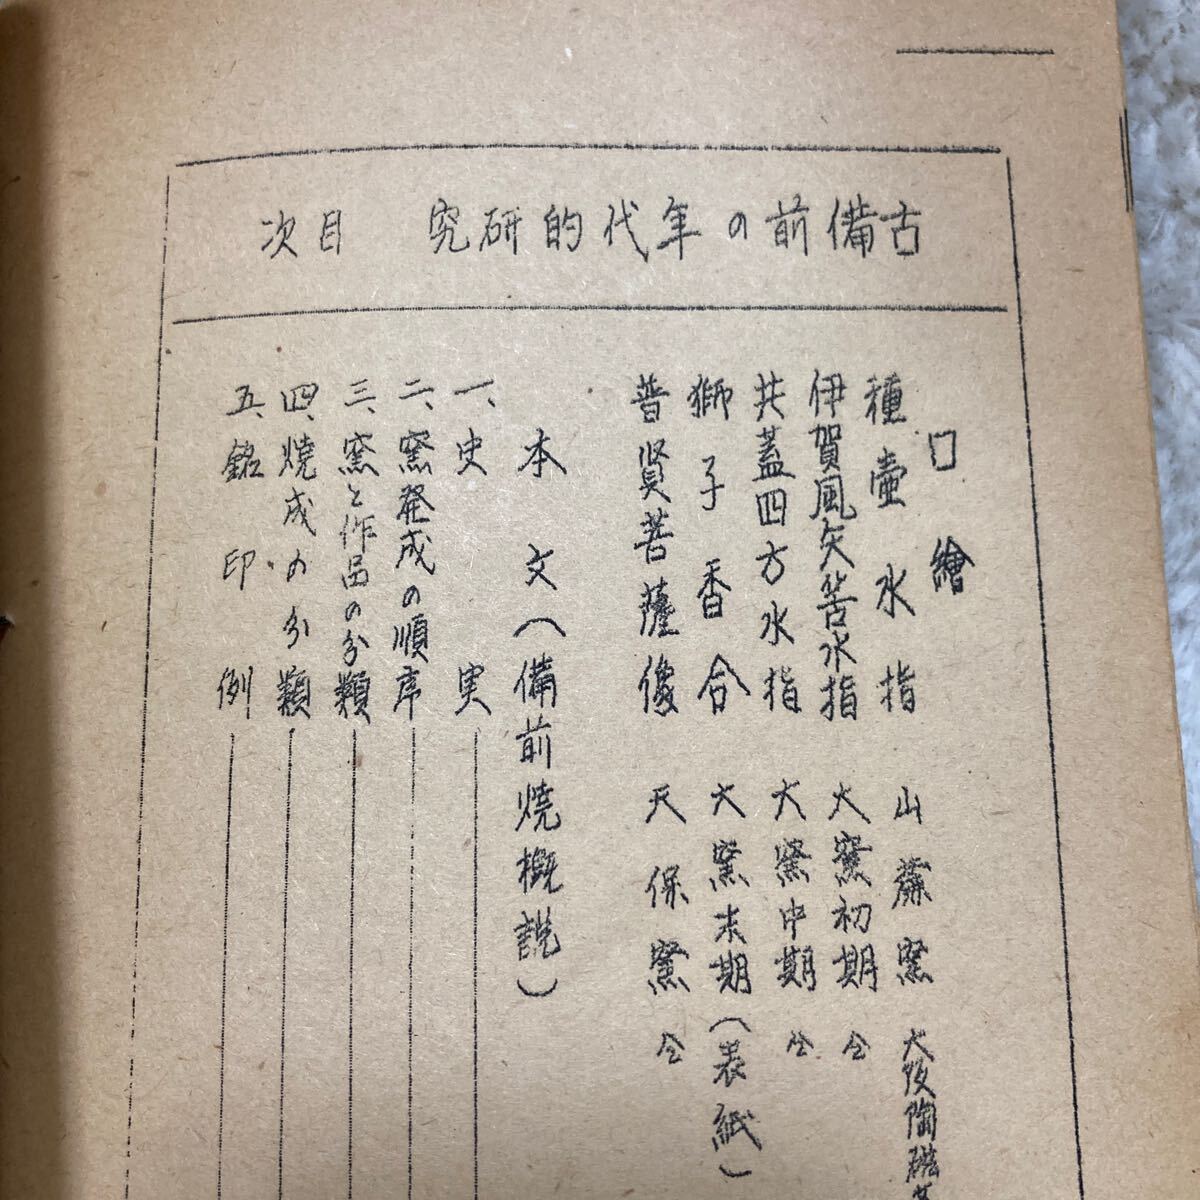 古備前の年代的研究 目次
口繪
種壷水指 山麓窯 大阪陶磁
伊賀風矢筈水指 大窯初期 仝
共蓋四方水指 大窯中期 仝
獅子香合 大窯末期(表紙)
普賢菩薩像 天保窯 仝
本文(備前焼概説)
一、史実
二、窯発成の順序
三、窯と作品の分類
四、焼成の分類
五、銘印例